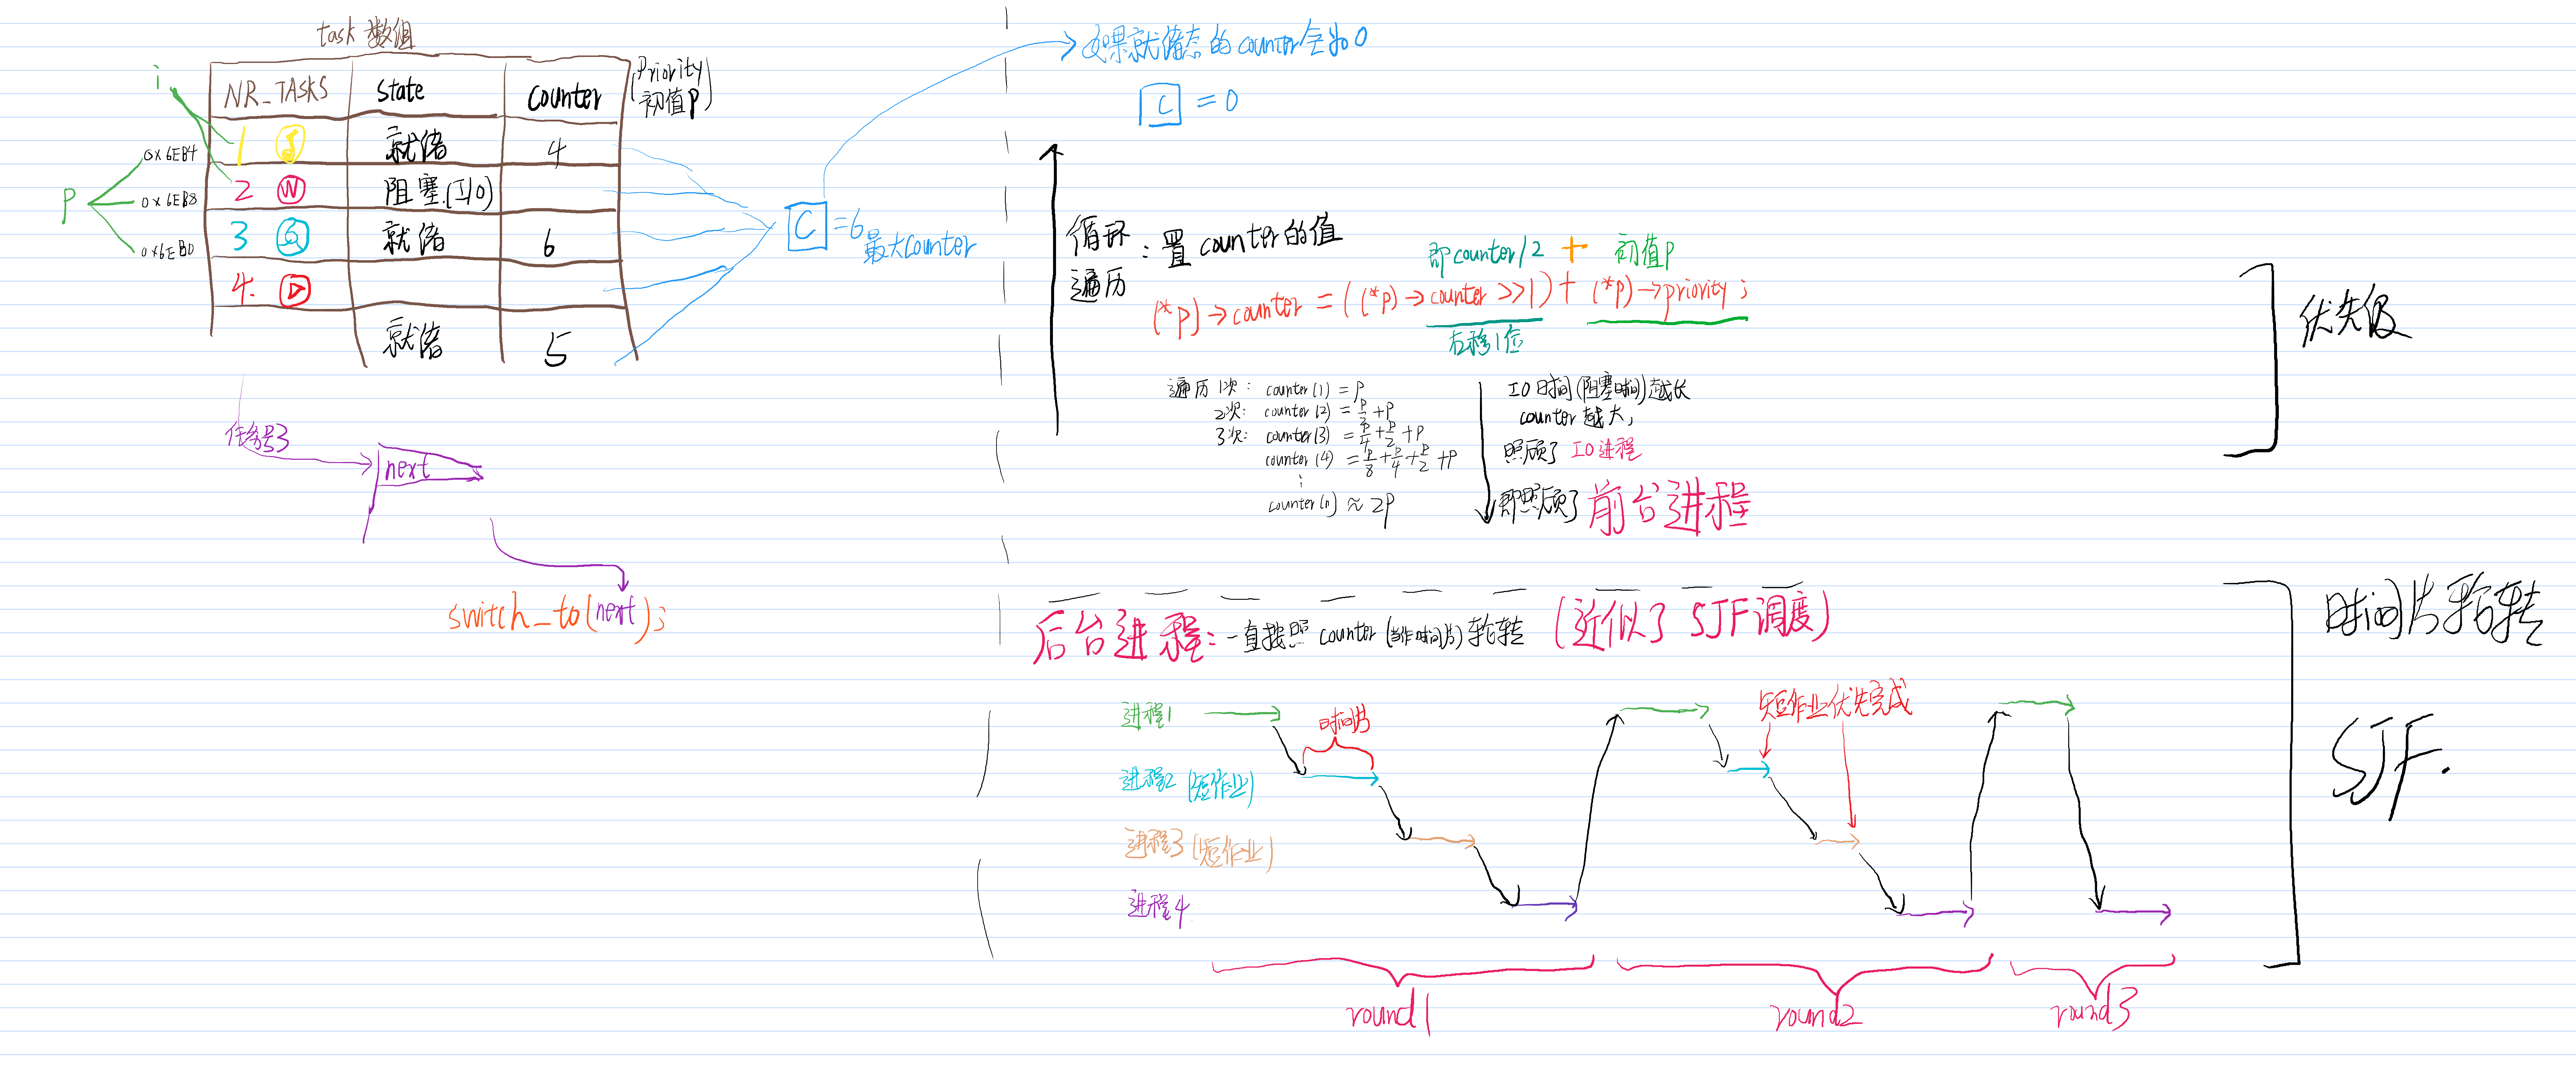 task 数组
i
NR_TASKS state counter (Priority 初值P)
0x6EB4 1 就绪 4
P 0x6EB8 2 W 阻塞(I/O)
0x6EB0 3 就绪 6
4.
就绪 5
C =6 最大counter
任务号3
next
switch_to(next);
如果就绪态的counter全为0
C =0
循环遍历: 置counter的值
即counter/2 + 初值P
(*p)→counter = ((*p)→counter >>1) + (*p)→priority;
右移1位
遍历1次: counter(1) = P
2次: counter(2) = P/2 + P
3次: counter(3) = P/4 + P/2 + P
counter(4) = P/8 + P/4 + P/2 + P
⋮
counter(n) ≈ 2P
IO时间(阻塞时间)越长
counter越大,
照顾了 IO进程
即照顾了 前台进程
优先级
后台进程: 一直按照 counter (当作时间片) 轮转 (近似了 SJF调度)
时间片轮转
SJF.
进程1
时间片
短作业优先完成
进程2 (短作业)
进程3 (短作业)
进程4
round1
round2
round3